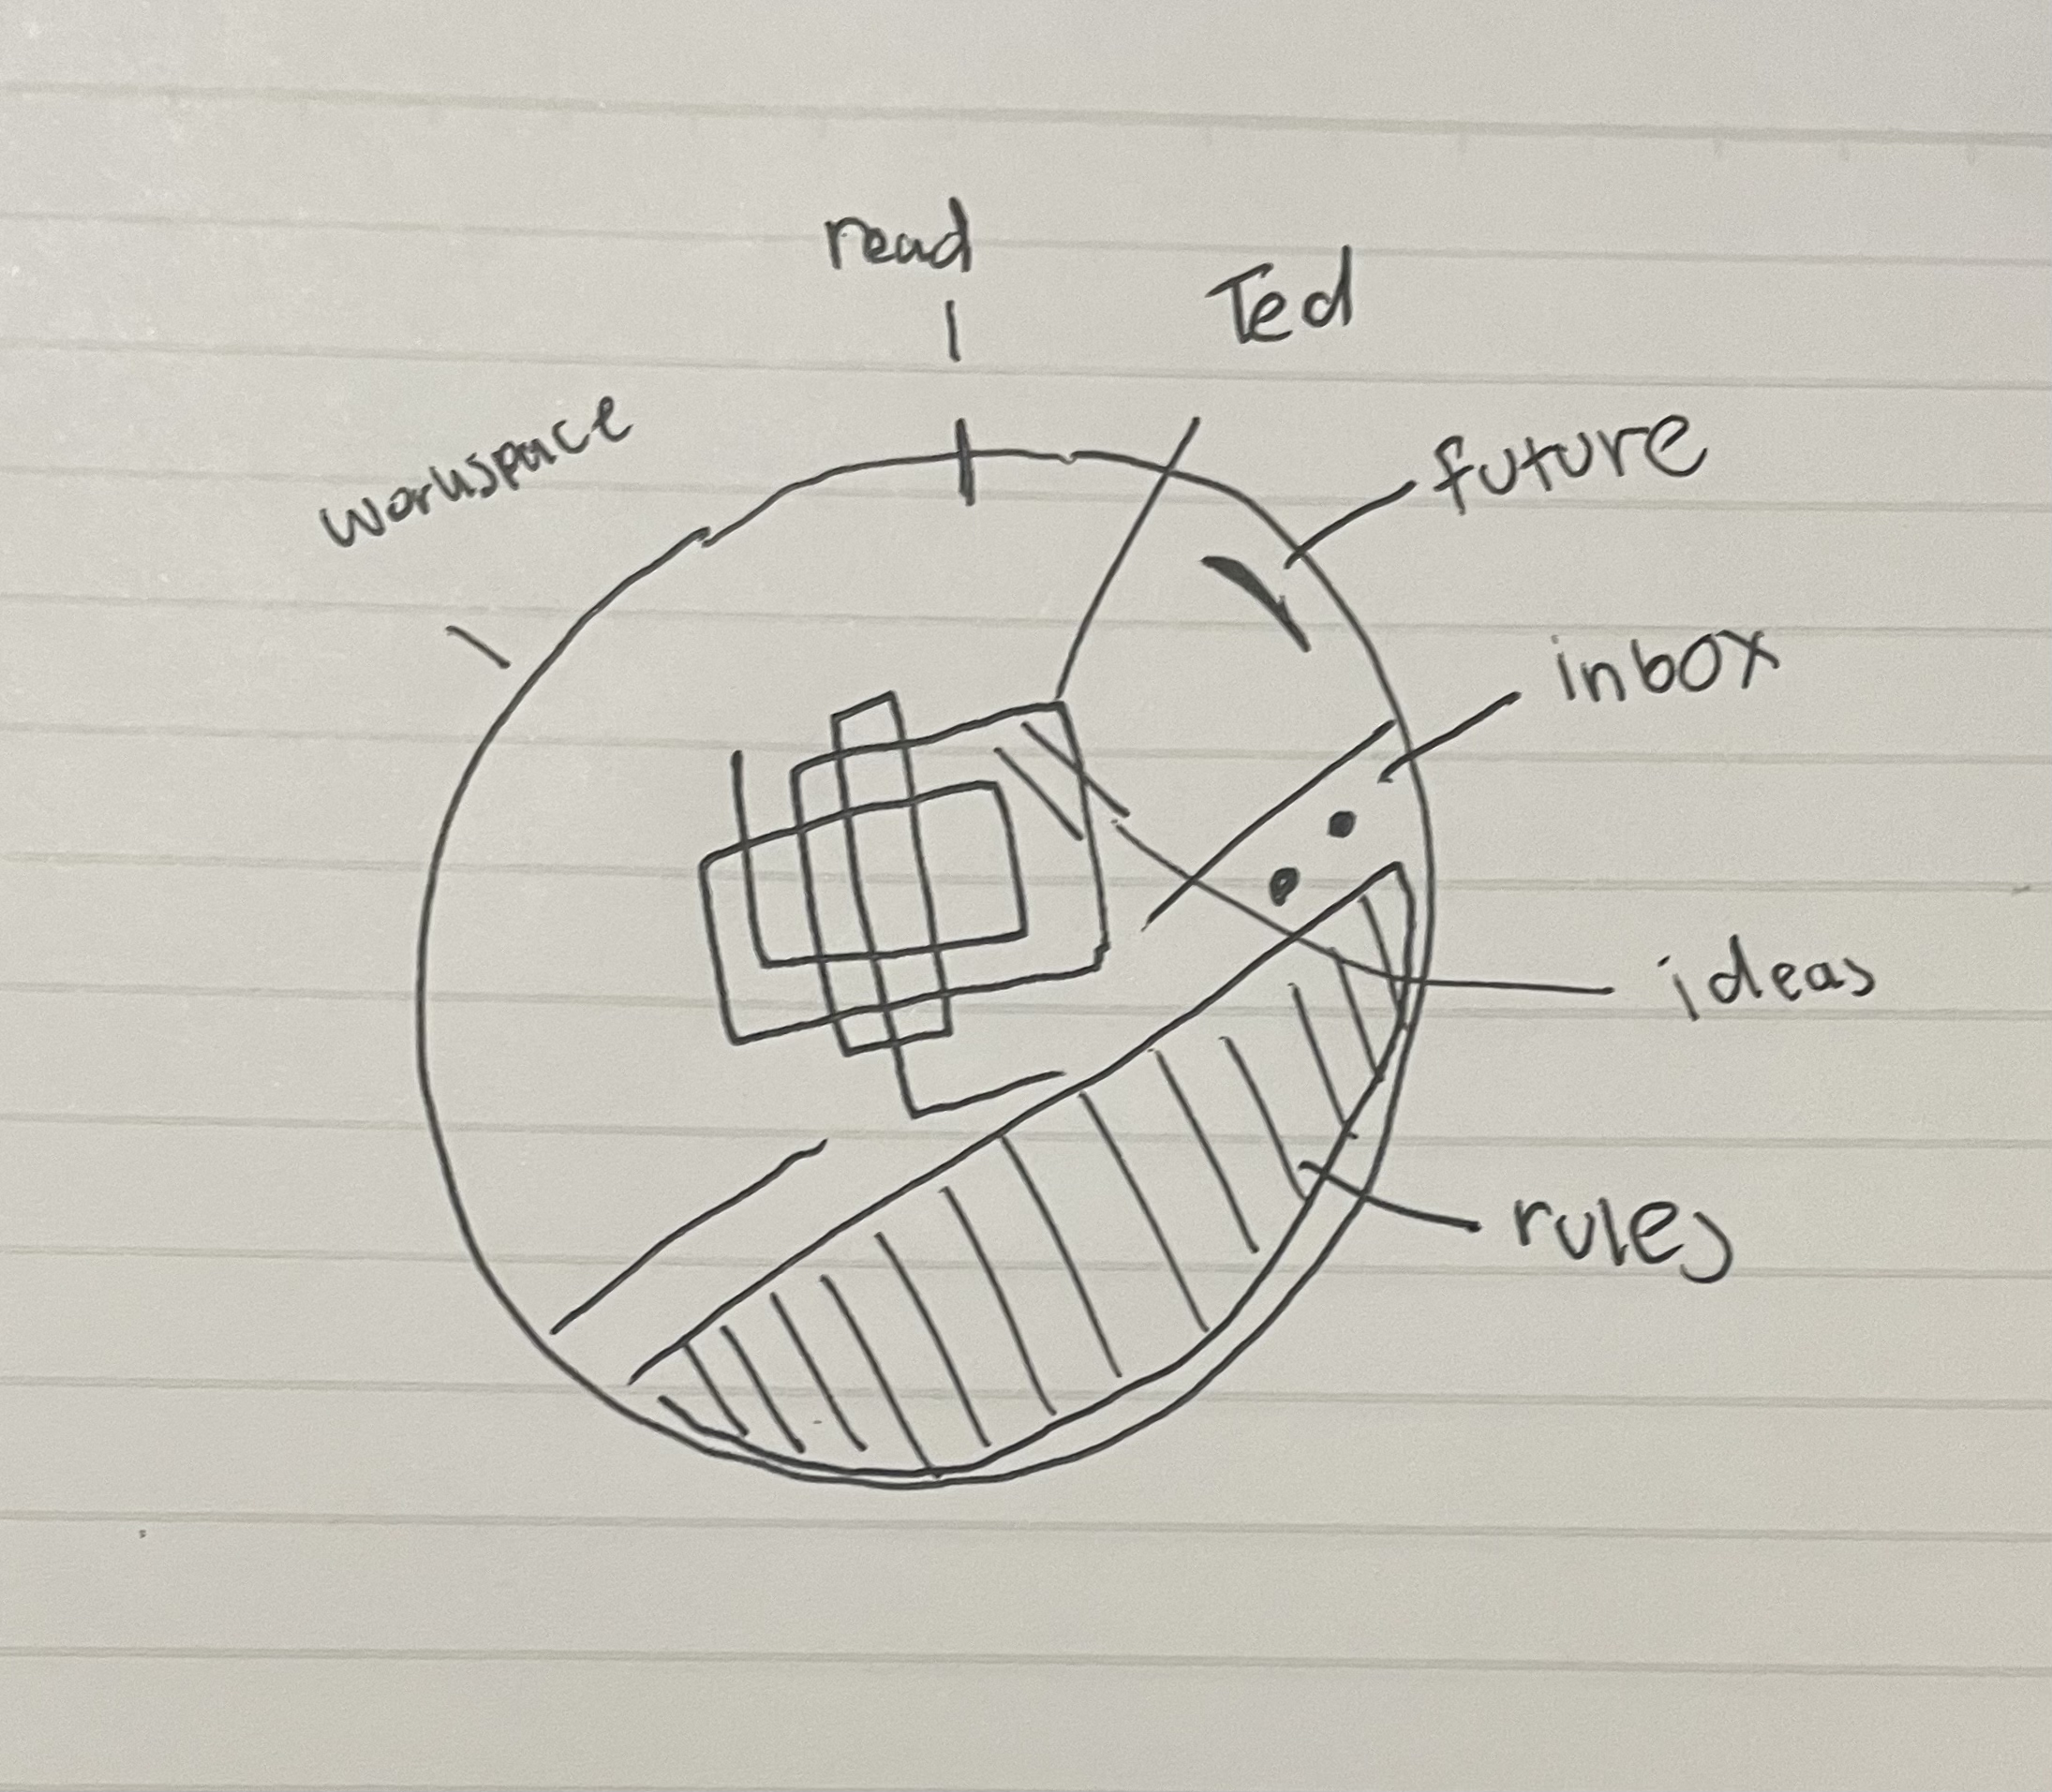 read
Ted
workspace
future
inbox
ideas
rules